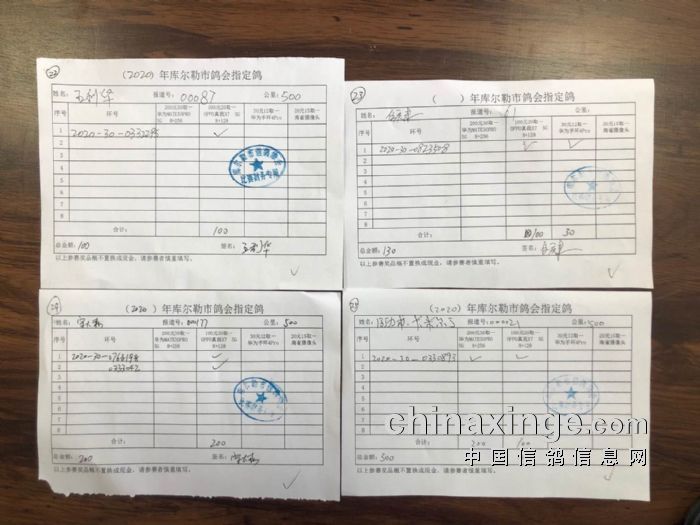 22
(2020) 年库尔勒市鸽会指定鸽
姓名: 王利华 报道号: 00087 公里: 500
序号 环号 200元30取一 华为MATE30PRO 5G 8+256 100元20取一 OPPO真我X7 5G 8+128 30元12取一 华为手环4Pro 20元15取一 海雀摄像头
1 ✓
2
3
4
5
6
7
8
合计: 100
总金额: 100 签名: 王利华
以上参赛奖品概不置换成现金, 请参赛者慎重填写.
✓
23
( ) 年库尔勒市鸽会指定鸽
姓名: 报道号: 公里:
序号 环号 200元30取一 华为MATE30PRO 5G 8+256 100元20取一 OPPO真我X7 5G 8+128 30元12取一 华为手环4Pro 20元15取一 海雀摄像头
1 2020-30-0823508 ✓ ✓
2
3
4
5
6
7
8
合计: 100 30
总金额: 130 签名:
以上参赛奖品概不置换成现金, 请参赛者慎重填写.
✓
(2020) 年库尔勒市鸽会指定鸽
姓名: 报道号: 000177 公里: 500
序号 环号 200元30取一 华为MATE30PRO 5G 8+256 100元20取一 OPPO真我X7 5G 8+128 30元12取一 华为手环4Pro 20元15取一 海雀摄像头
1 ✓
2 0333042 ✓
3
4
5
6
7
8
合计: 200
总金额: 200 签名:
以上参赛奖品概不置换成现金, 请参赛者慎重填写.
✓
(2020) 年库尔勒市鸽会指定鸽
姓名: 报道号: 000021 公里: 500
序号 环号 200元30取一 华为MATE30PRO 5G 8+256 100元20取一 OPPO真我X7 5G 8+128 30元12取一 华为手环4Pro 20元15取一 海雀摄像头
1 2020-30-0330893 ✓ ✓
2
3
4
5
6
7
8
合计: 200 100
总金额: 300
以上参赛奖品概不置换成现金, 请参赛者慎重填写.
✓
chinaxinge.com
中国信鸽信息网